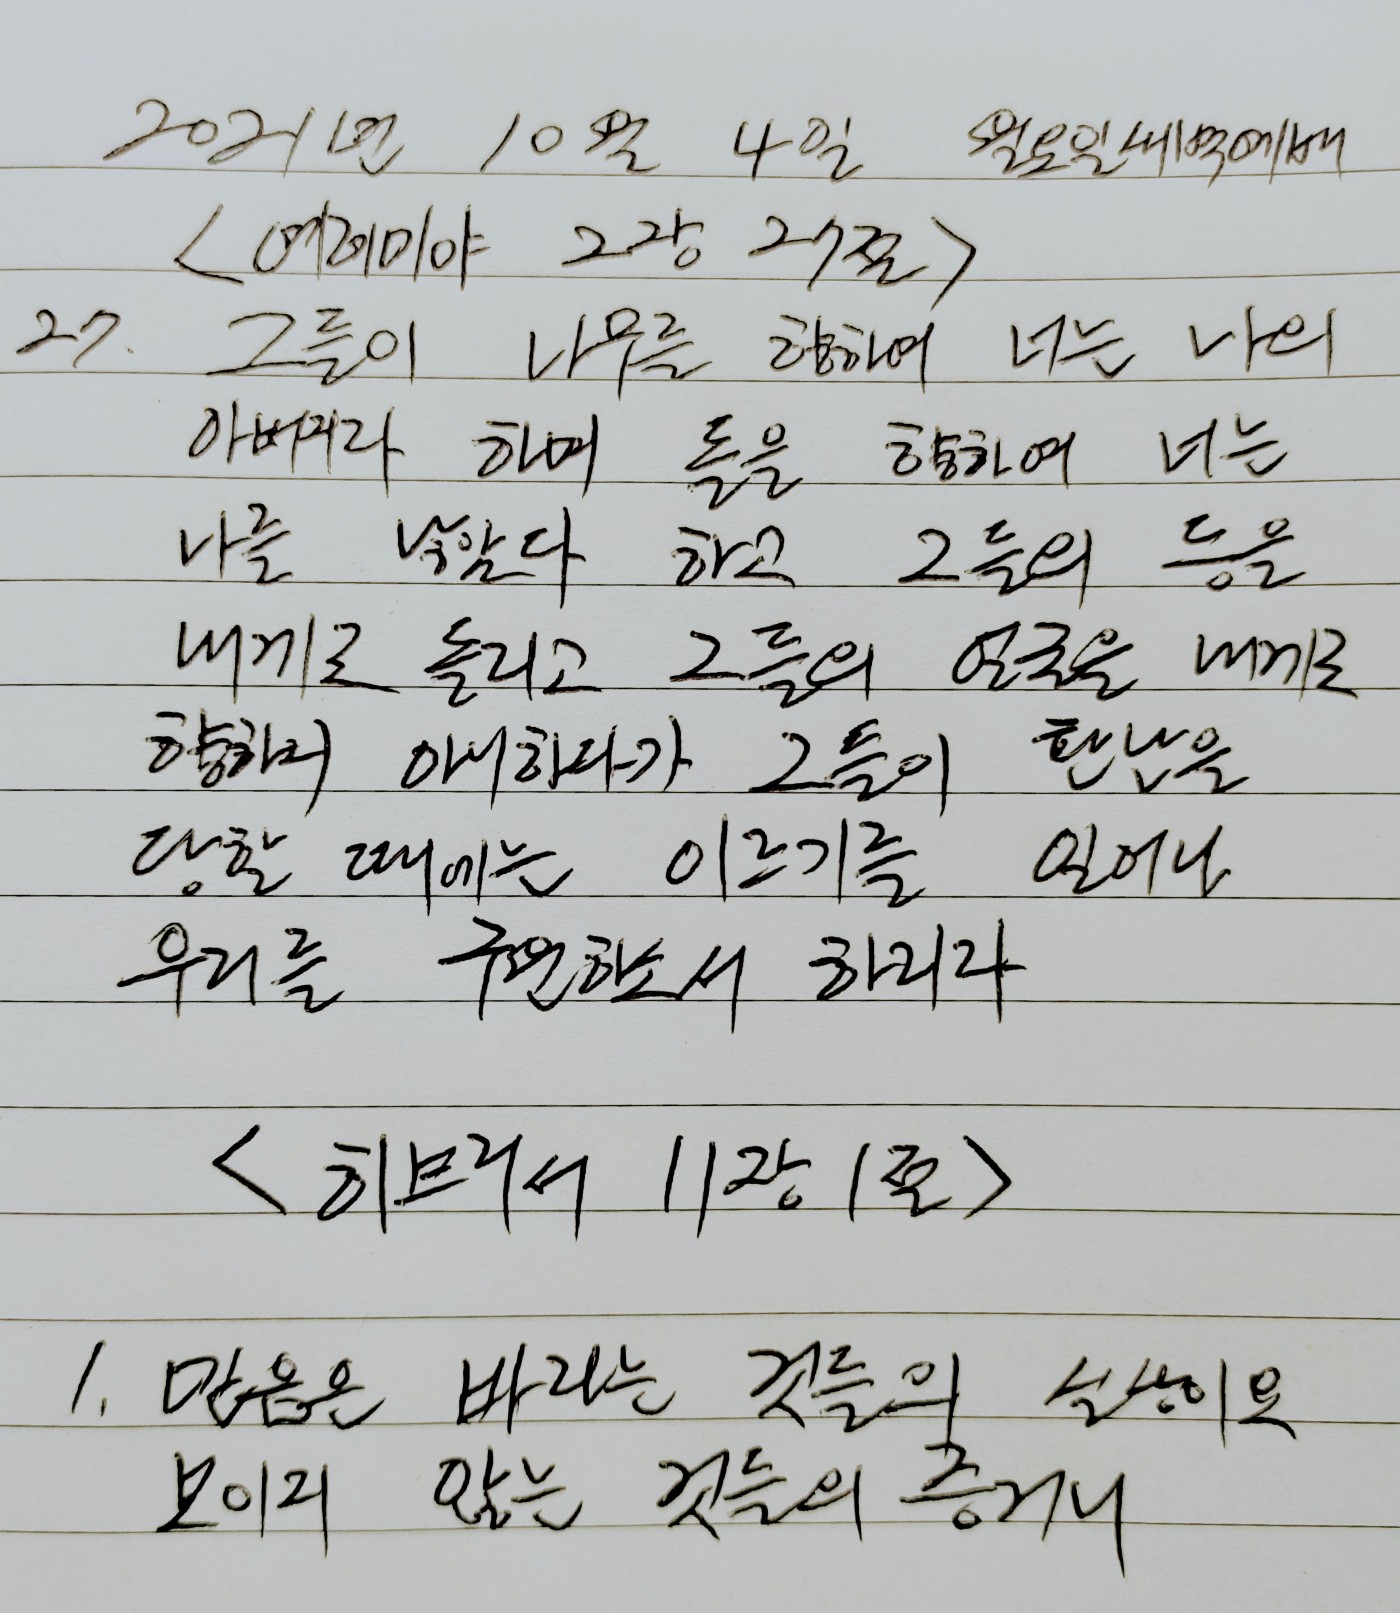 2021년 10월 4일 월요일새벽예배
<예레미야 2장 27절>
27. 그들이 나무를 향하여 너는 나의
아버지라 하며 돌을 향하여 너는
나를 낳았다 하고 그들의 등을
내게로 돌리고 그들의 얼굴을 내게로
향하지 아니하다가 그들이 환난을
당할 때에는 이르기를 일어나
우리를 구원하소서 하리라
<히브리서 11장 1절>
1. 믿음은 바라는 것들의 실상이요
보이지 않는 것들의 증거니